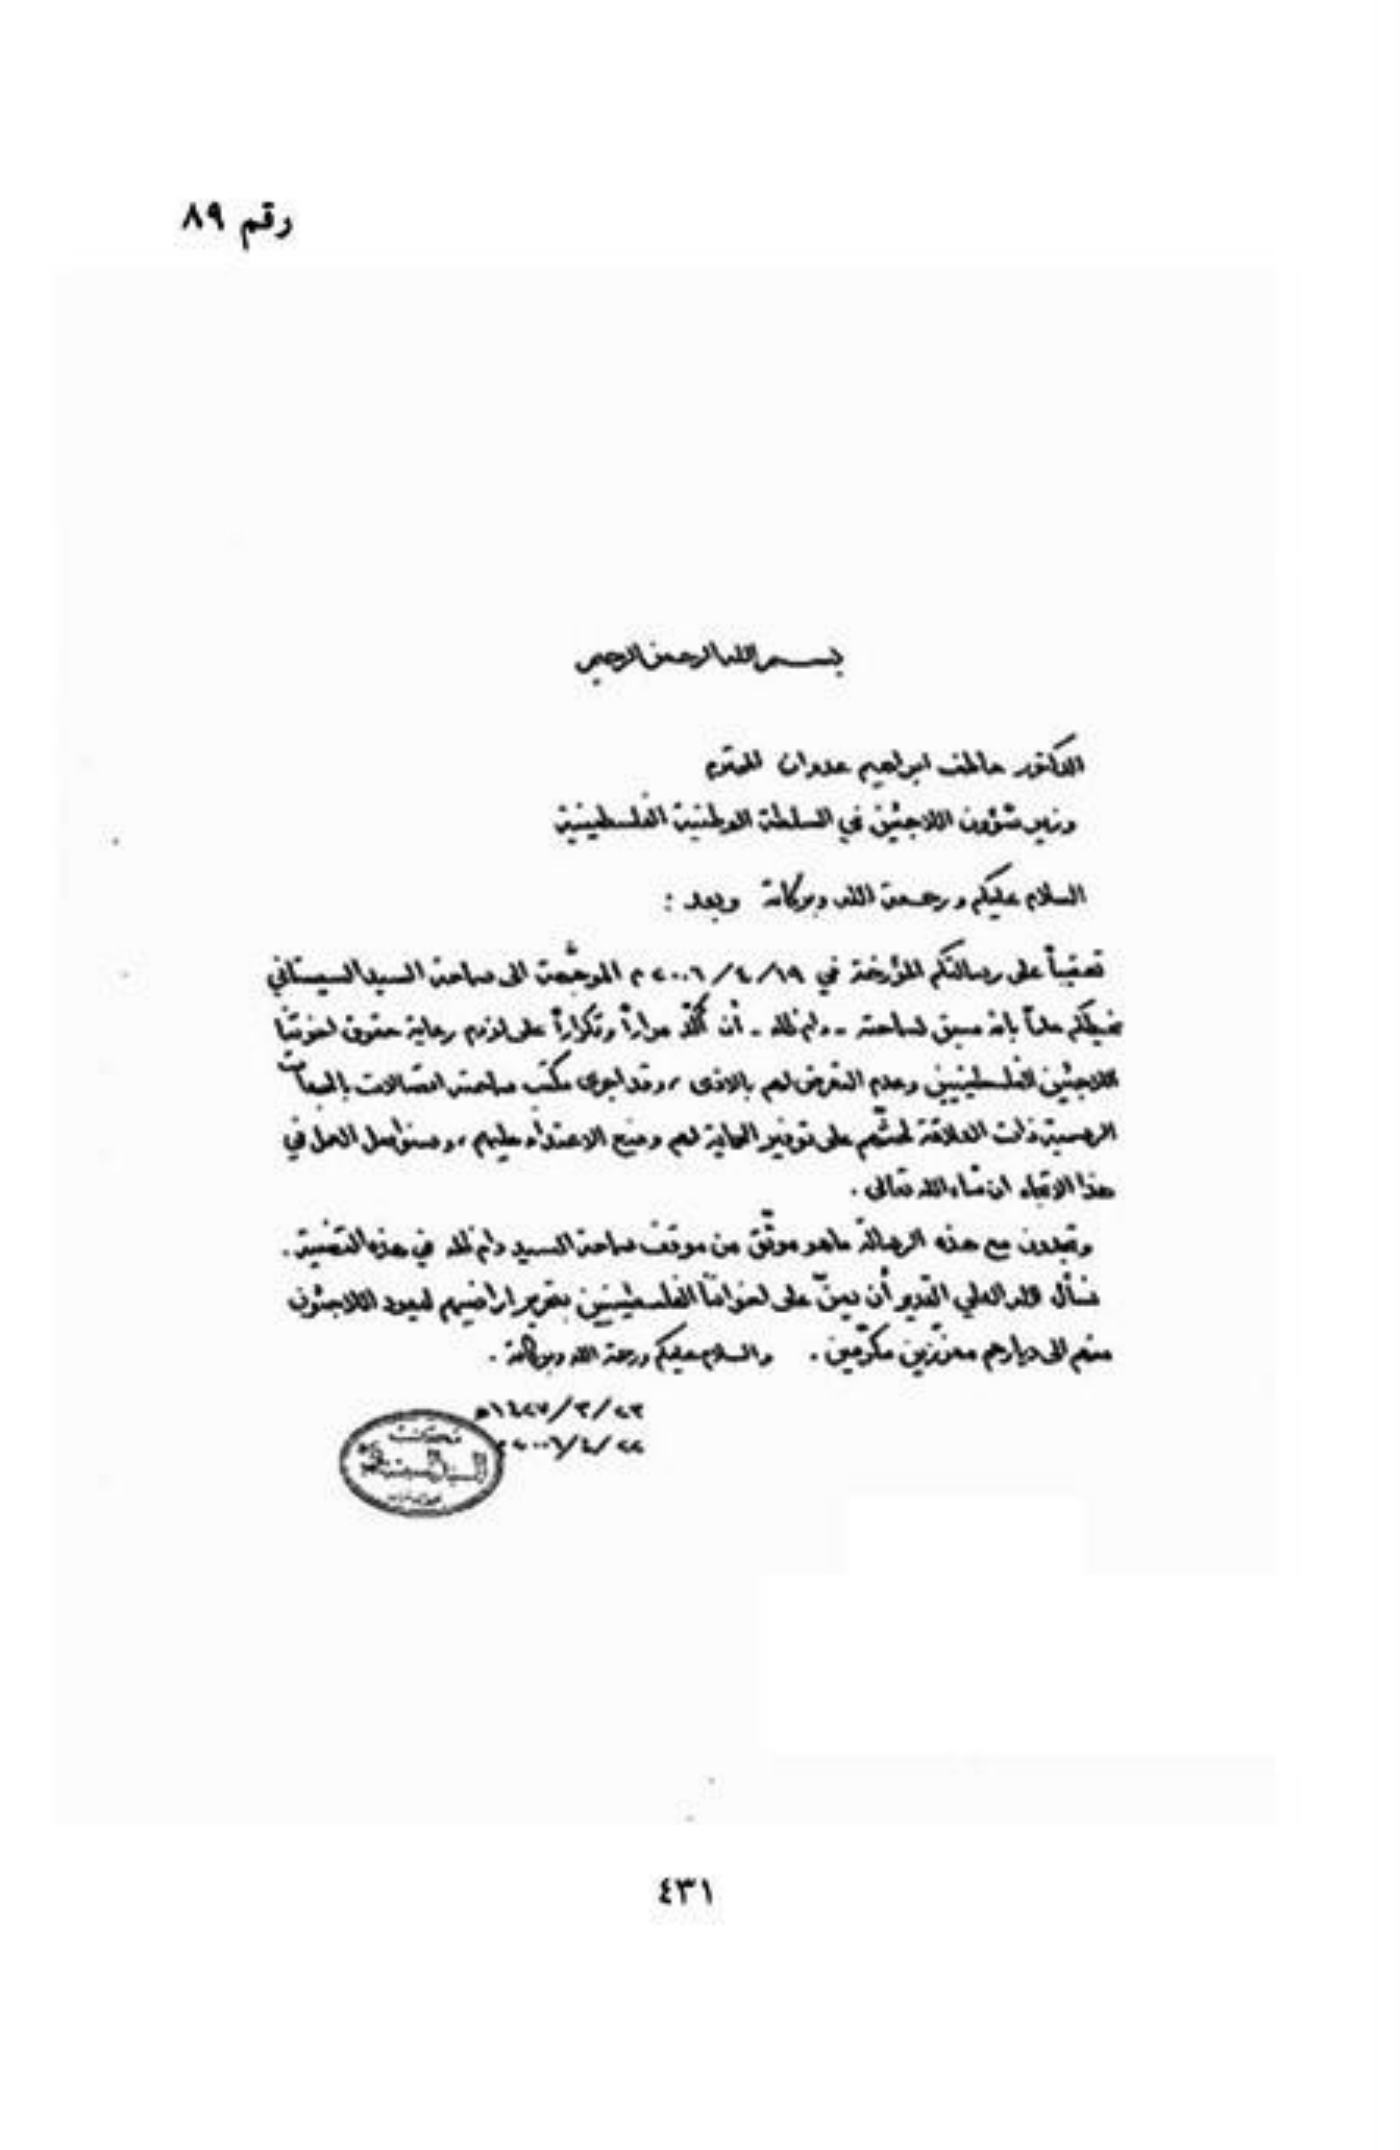 رقم ٨٩
بسم الله الرحمن الرحيم
الدكتور عاطف ابراهيم عدوان المحترم
وزير شؤون اللاجئين في السلطة الوطنية الفلسطينية
السلام عليكم ورحمة الله وبركاته وبعد :
تعقيباً على رسالتكم المؤرخة في ١٩/٤/٢٠٠٦ م الموجّهة الى سماحة السيد السيستاني
نحيطكم علماً بانه سبق لسماحته - دام ظله - أن أكّد مراراً وتكراراً على لزوم رعاية حقوق اخوتنا
اللاجئين الفلسطينيين وعدم التعرض لهم بالاذى ، وقد اجرى مكتب سماحته اتصالات بالجهات
الرسمية ذات العلاقة لحثّهم على توفير الحماية لهم ومنع الاعتداء عليهم ، وسنواصل العمل في
هذا الاتجاه ان شاء الله تعالى .
وتجدون مع هذه الرسالة ما هو موثّق من موقف سماحة السيد دام ظله في هذه القضية .
نسأل الله العلي القدير أن يمنّ على اخواننا الفلسطينيين بتحرير اراضيهم ليعود اللاجئون
منهم الى ديارهم معزّزين مكرّمين . والسلام عليكم ورحمة الله وبركاته .
٢٣/٣/١٤٢٧هـ
٢٢/٤/٢٠٠٦م
مكتب
السيد السيستاني
٤٣١